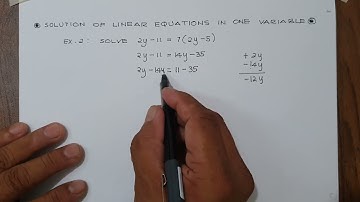 SOLUTION OF LINEAR EQUATIONS IN ONE VARIABLE
EX. 2: SOLVE 2y - 11 = 7(2y - 5)
2y - 11 = 14y - 35
2y - 14y = 11 - 35
+ 2y
-14y
-12y